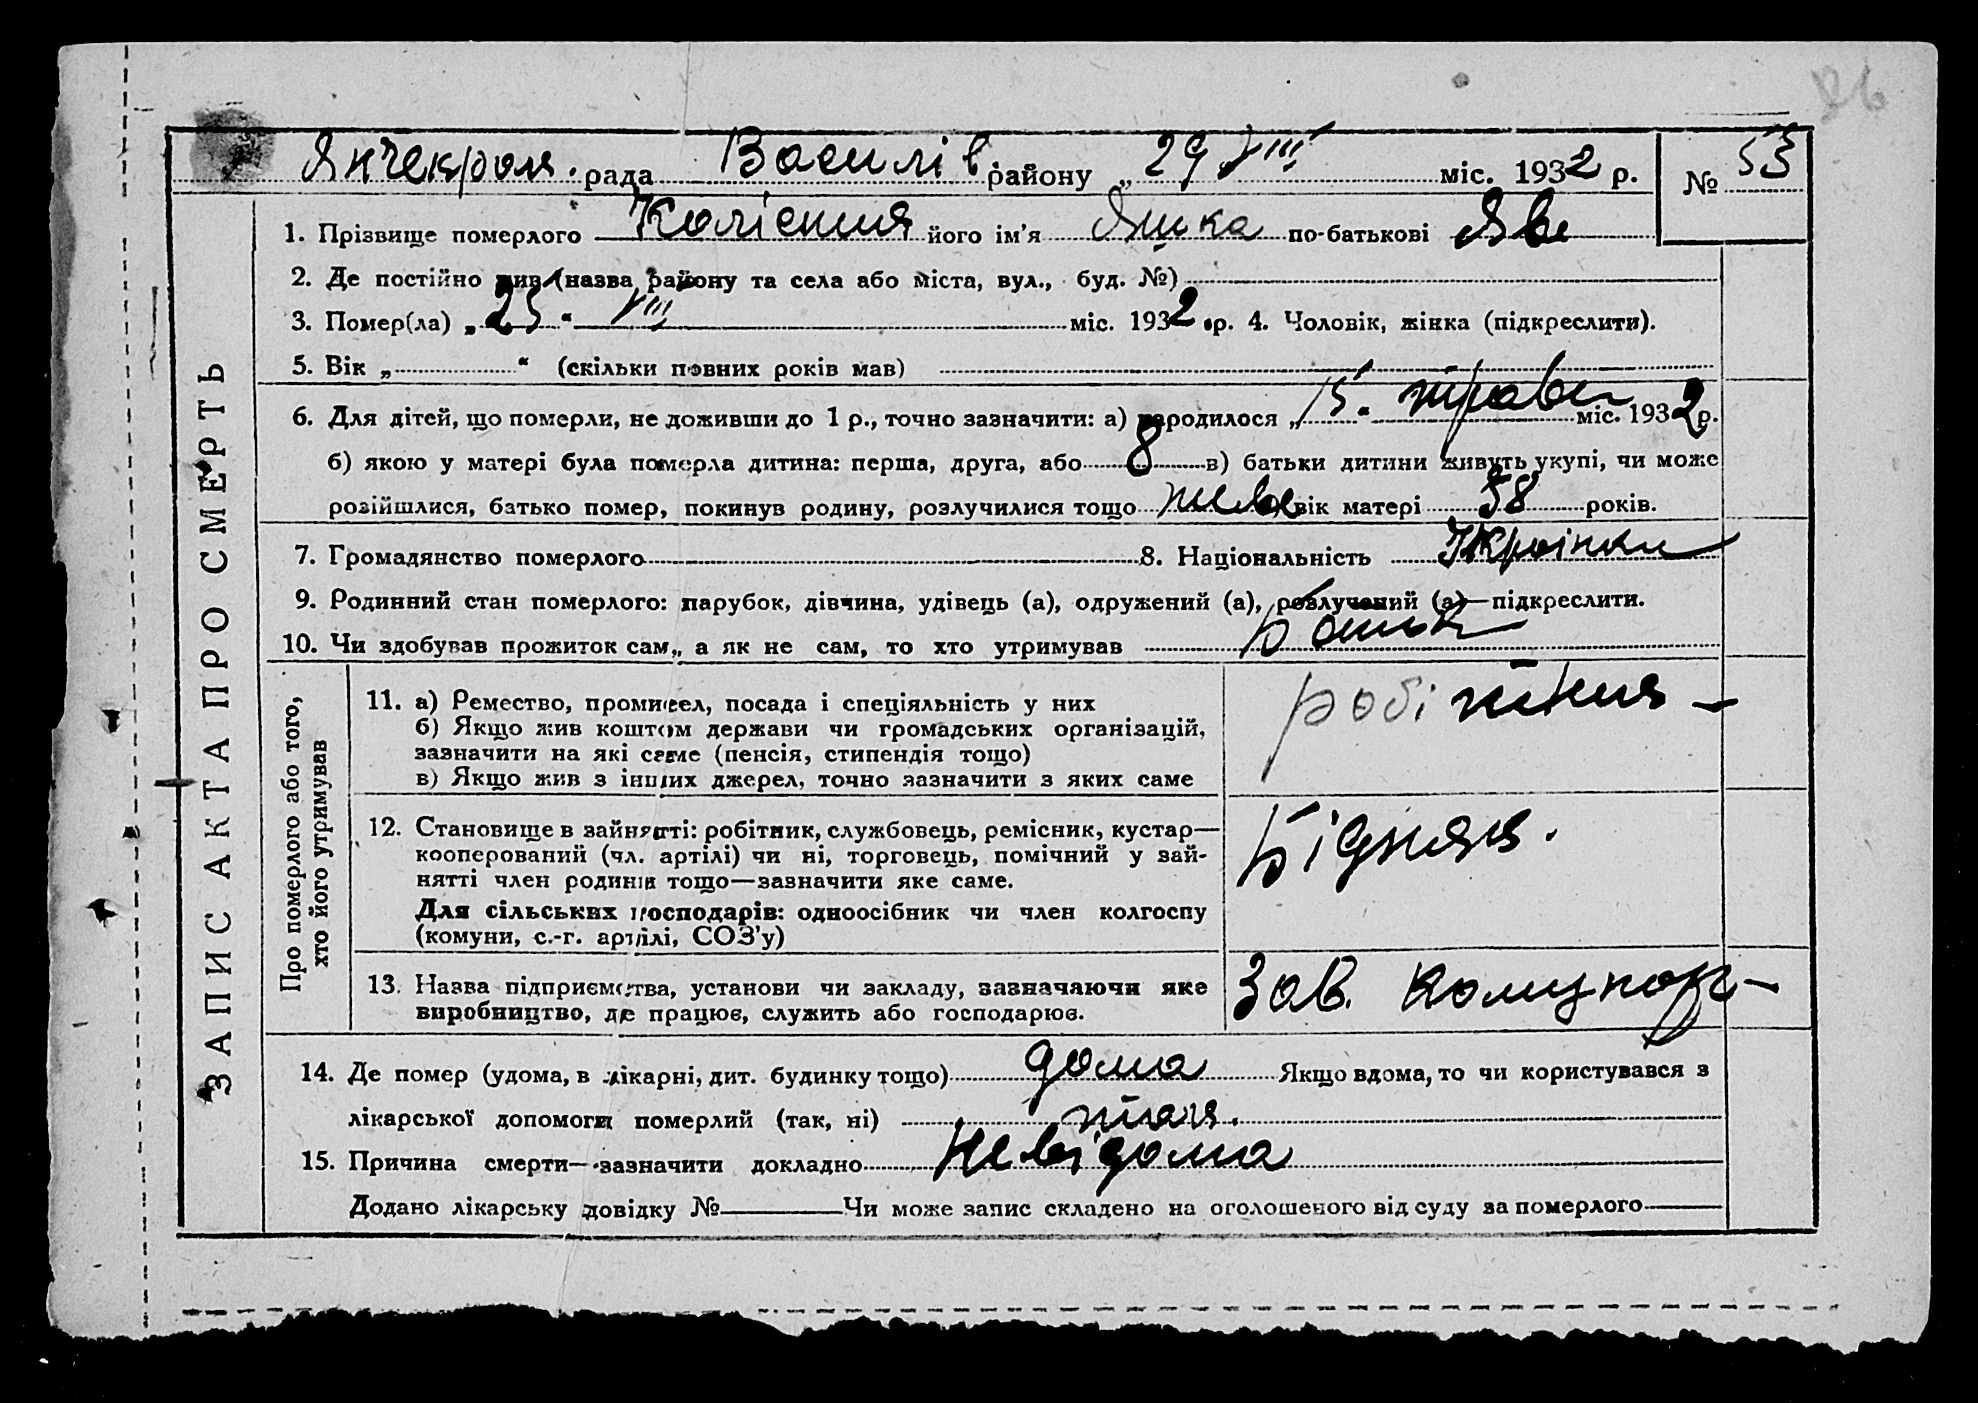 86
Янчекрак. рада Василів. району „ 29 VIII міс. 1932 р. № 53
1. Прізвище померлого його ім'я по-батькові
2. Де постійно жив (назва району та села або міста, вул., буд. №)
3. Помер(ла) „ 25 “ VIII міс. 1932 р. 4. Чоловік, жінка (підкреслити).
5. Вік „ “ (скільки повних років мав)
6. Для дітей, що померли, не доживши до 1 р., точно зазначити: а) народилося „ 15 “ травн міс. 1932 р.
б) якою у матері була померла дитина: перша, друга, або 8 в) батьки дитини живуть укупі, чи може
розійшлися, батько помер, покинув родину, розлучилися тощо вік матері 38 років.
7. Громадянство померлого 8. Національність
9. Родинний стан померлого: парубок, дівчина, удівець (а), одружений (а), розлучений (а)—підкреслити.
10. Чи здобував прожиток сам, а як не сам, то хто утримував Батьк
ЗАПИС АКТА ПРО СМЕРТЬ
Про померлого або того,
хто його утримував
11. а) Ремество, промисел, посада і спеціяльність у них
б) Якщо жив коштом держави чи громадських організацій,
зазначити на які саме (пенсія, стипендія тощо)
в) Якщо жив з інших джерел, точно зазначити з яких саме
12. Становище в зайнятті: робітник, службовець, ремісник, кустар—
кооперований (чл. артілі) чи ні, торговець, помічний у зай-
нятті член родини тощо—зазначити яке саме.
Для сільських господарів: одноосібник чи член колгоспу
(комуни, с.-г. артілі, СОЗ'у)
13. Назва підприємства, установи чи закладу, зазначаючи яке
виробництво, де працює, служить або господарює.
Зав.
14. Де помер (удома, в лікарні, дит. будинку тощо) дома Якщо вдома, то чи користувався з
лікарської допомоги померлий (так, ні) так.
15. Причина смерти—зазначити докладно Невідома
Додано лікарську довідку № Чи може запис складено на оголошеного від суду за померлого